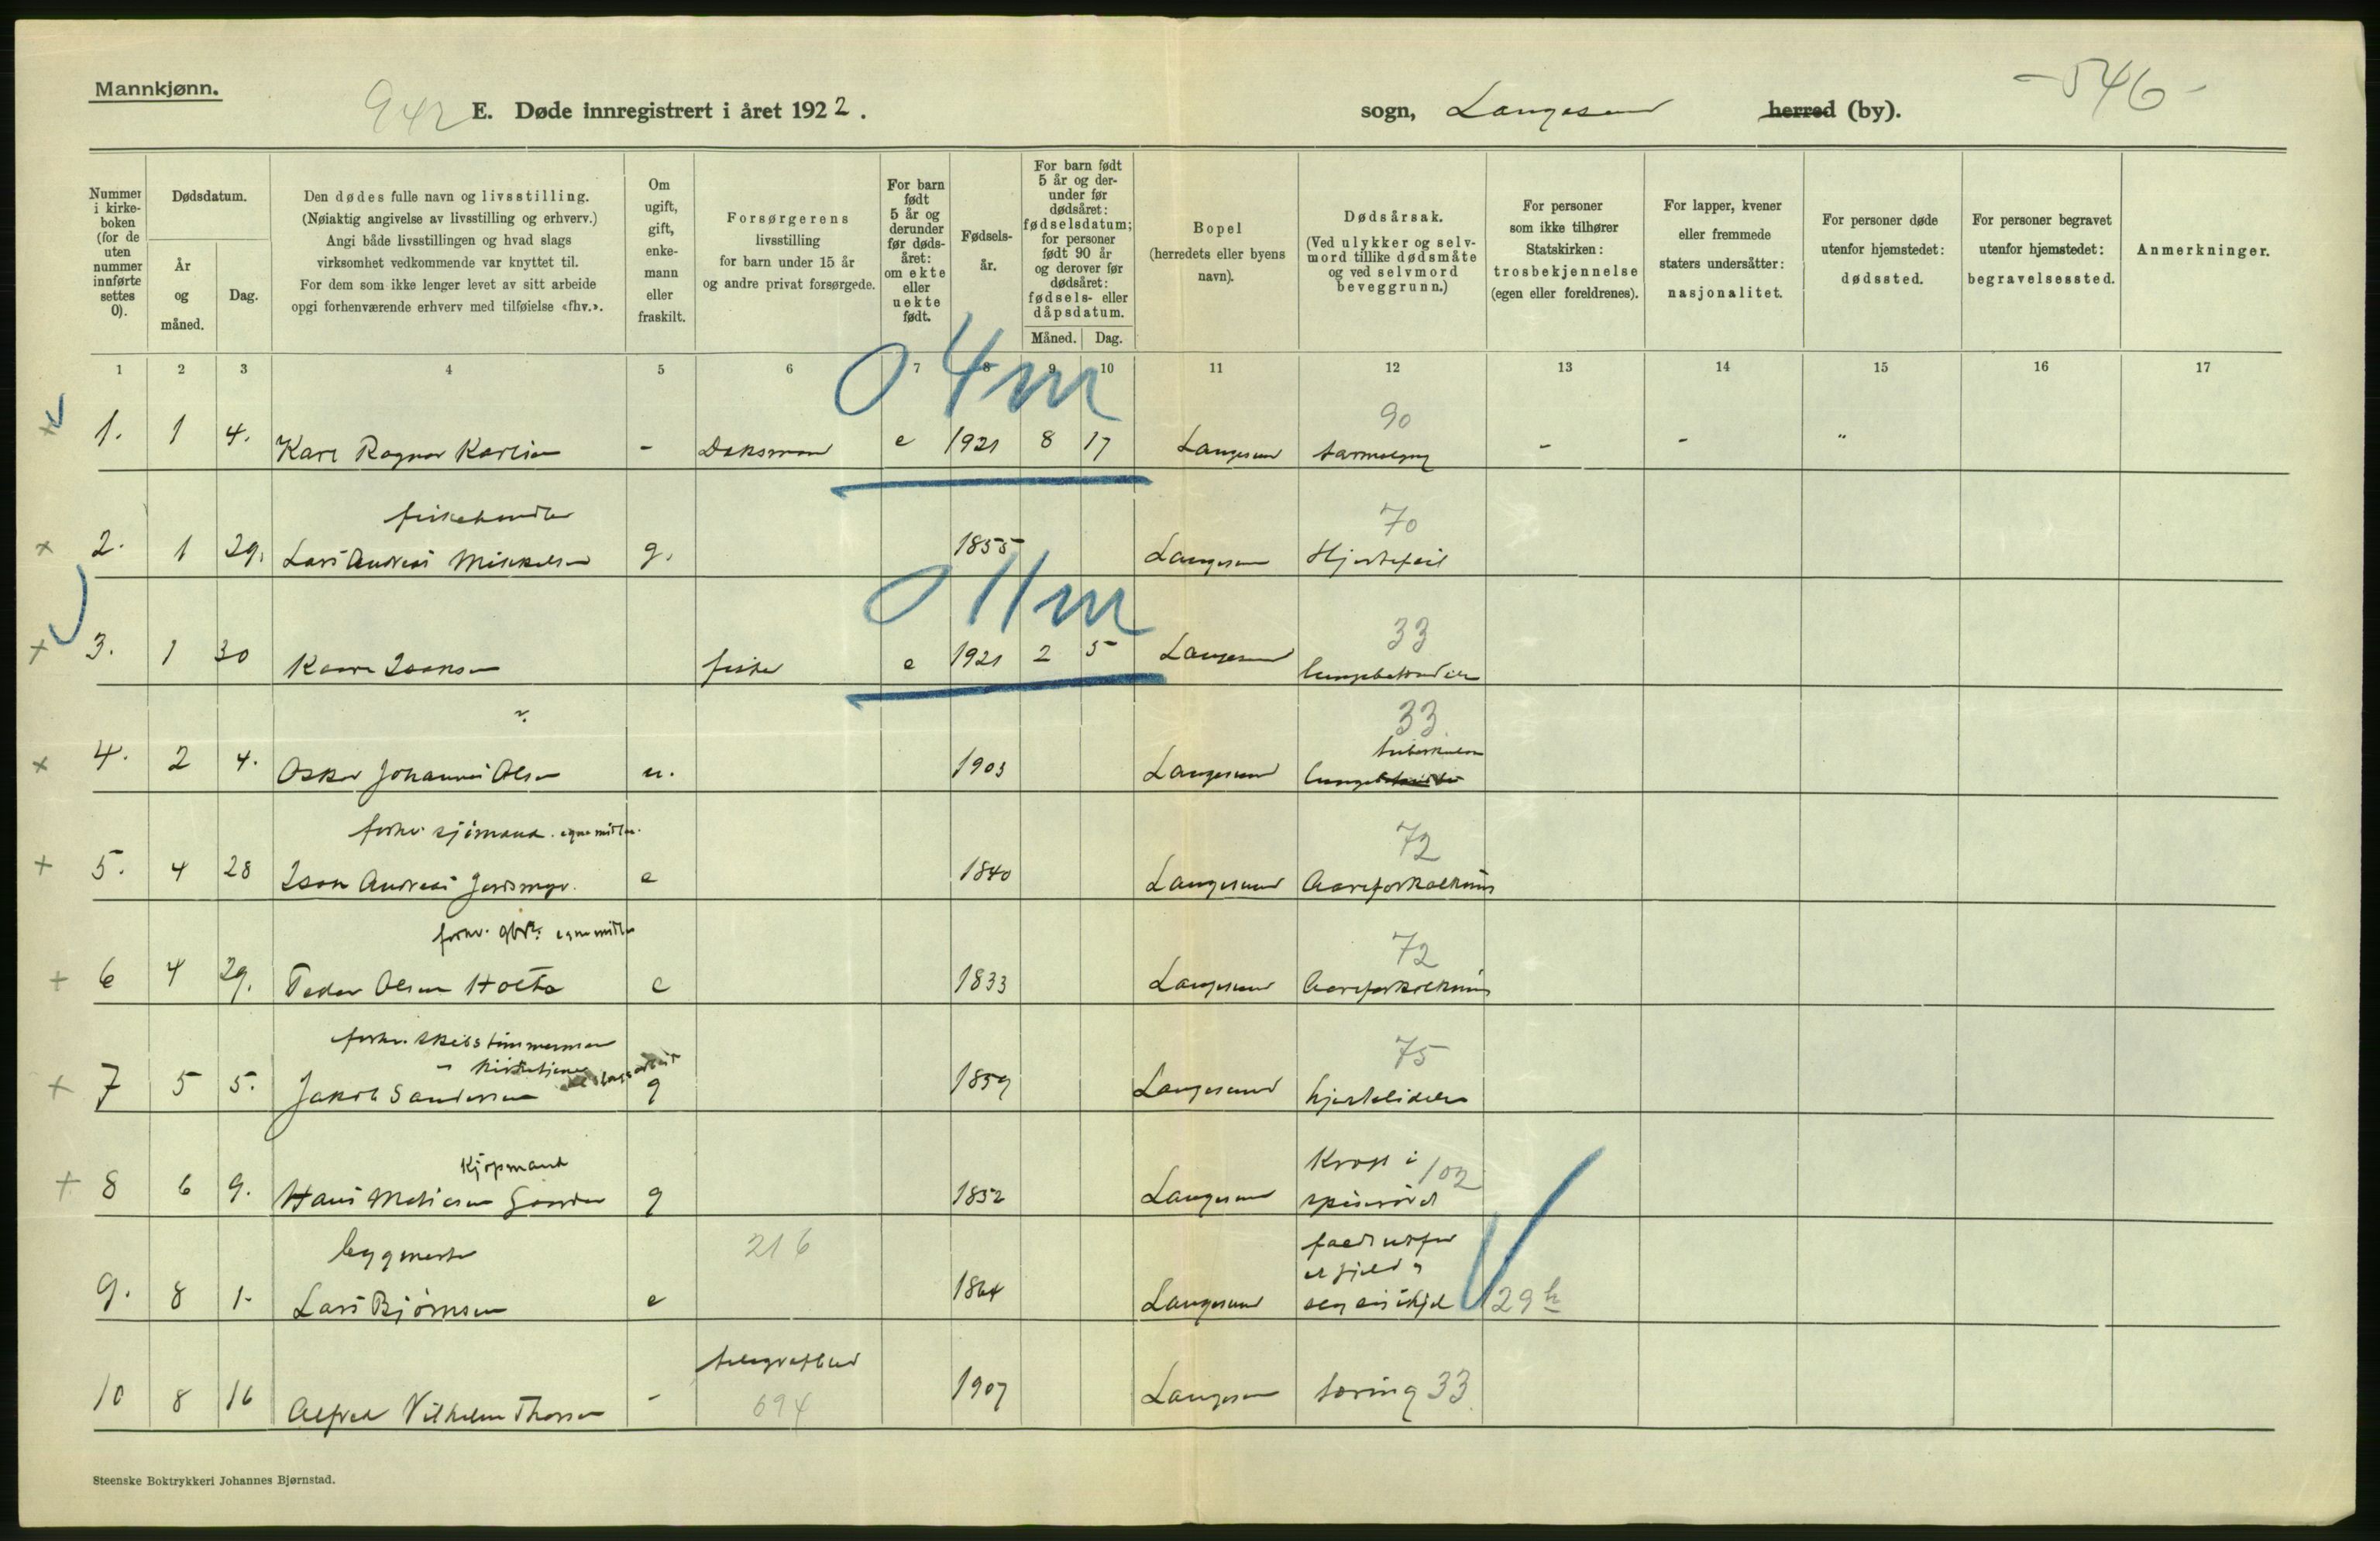 Mannkjønn.
942 E. Døde innregistrert i året 1922.
sogn, Langesund herred (by).
-546-
Nummer i kirke-boken (for de uten nummer innførte settes 0).
Dødsdatum.
År og måned.
Dag.
Den dødes fulle navn og livsstilling.
(Nøiaktig angivelse av livsstilling og erhverv.)
Angi både livsstillingen og hvad slags
virksomhet vedkommende var knyttet til.
For dem som ikke lenger levet av sitt arbeide
opgi forhenværende erhverv med tilføielse «fhv.».
Om ugift, gift, enke-mann eller fraskilt.
Forsørgerens
livsstilling
for barn under 15 år
og andre privat forsørgede.
For barn født 5 år og derunder før døds-året: om ekte eller uekte født.
Fødsels-år.
For barn født 5 år og der-under før dødsåret: fødselsdatum; for personer født 90 år og derover før dødsåret: fødsels- eller dåpsdatum.
Måned. Dag.
Bopel
(herredets eller byens
navn).
Dødsårsak.
(Ved ulykker og selv-mord tillike dødsmåte og ved selvmord beveggrunn.)
For personer
som ikke tilhører
Statskirken:
trosbekjennelse
(egen eller foreldrenes).
For lapper, kvener
eller fremmede
staters undersåtter:
nasjonalitet.
For personer døde
utenfor hjemstedet:
dødssted.
For personer begravet
utenfor hjemstedet:
begravelsessted.
Anmerkninger.
1 2 3 4 5 6 7 8 9 10 11 12 13 14 15 16 17
0 4m
90
1. 1 4. Karl Ragnar Karlsen - Doksmand e 1921 8 17 Langesund tarmslyng - - "
fiskehandler
70
2. 1 29. Lars Andreas Mikkelsen g. 1855 Langesund Hjertefeil
0 11m
33
3. 1 30 Kaare Isaksen fisker e 1921 2 5 Langesund lungebetændelse
?
33
tuberkulose
4. 2 4. Oskar Johannes Olsen u. 1903 Langesund
forhv. sjömand. egne midler.
72
5. 4 28 Isak Andreas e 1840 Langesund Aareforkalkning
forhv. gbr. egne midler
72
6 4 29. Peder Olsen Holta e 1833 Langesund Aareforkalkning
forhv. skibstimmermann
" kirketjener
75
7 5 5. Jakob Sandersen g 1859 Langesund hjertelidelse
Kjøpmand
Kræft i 102
8 6 9. Hans Mathiesen g 1852 Langesund spiserör
byggmester
216
faldt utfor
et fjeld og
9. 8 1. Lars Bjørnsen e 1864 Langesund slog sig ihjel 29h
telegrafbud
10 8 16 Alfred Vilhelm Thorsen - 694 1907 Langesund tæring 33
Steenske Boktrykkeri Johannes Bjørnstad.